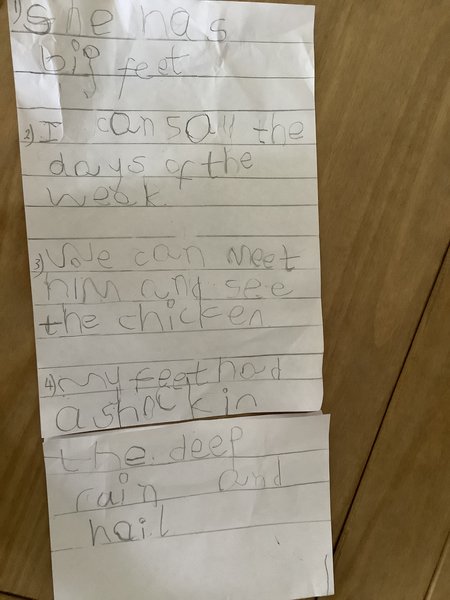 1) She has
big feet
2) I can sall the
days of the
weak.
3) We can Meet
hiM and see
the chicken
4) My feet had
a shok k in
the deep
rain and
hail